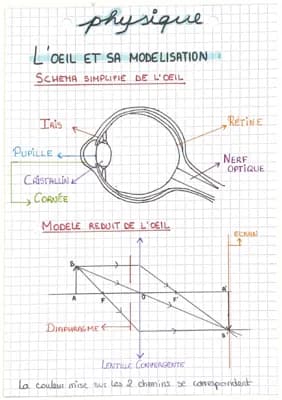 physique
L'OEIL ET SA MODELISATION
SCHEMA SIMPLIFIE DE L'OEIL
IRIS
RETINE
PUPILLE
NERF
OPTIQUE
CRISTALLIN
CORNÉE
MODELE REDUIT DE L'OEIL
ECRAN
B
A
F
O
F'
A'
B'
DIAPHRAGME
LENTILLE CONVERGENTE
La couleur mise sur les 2 chemins se correspondent